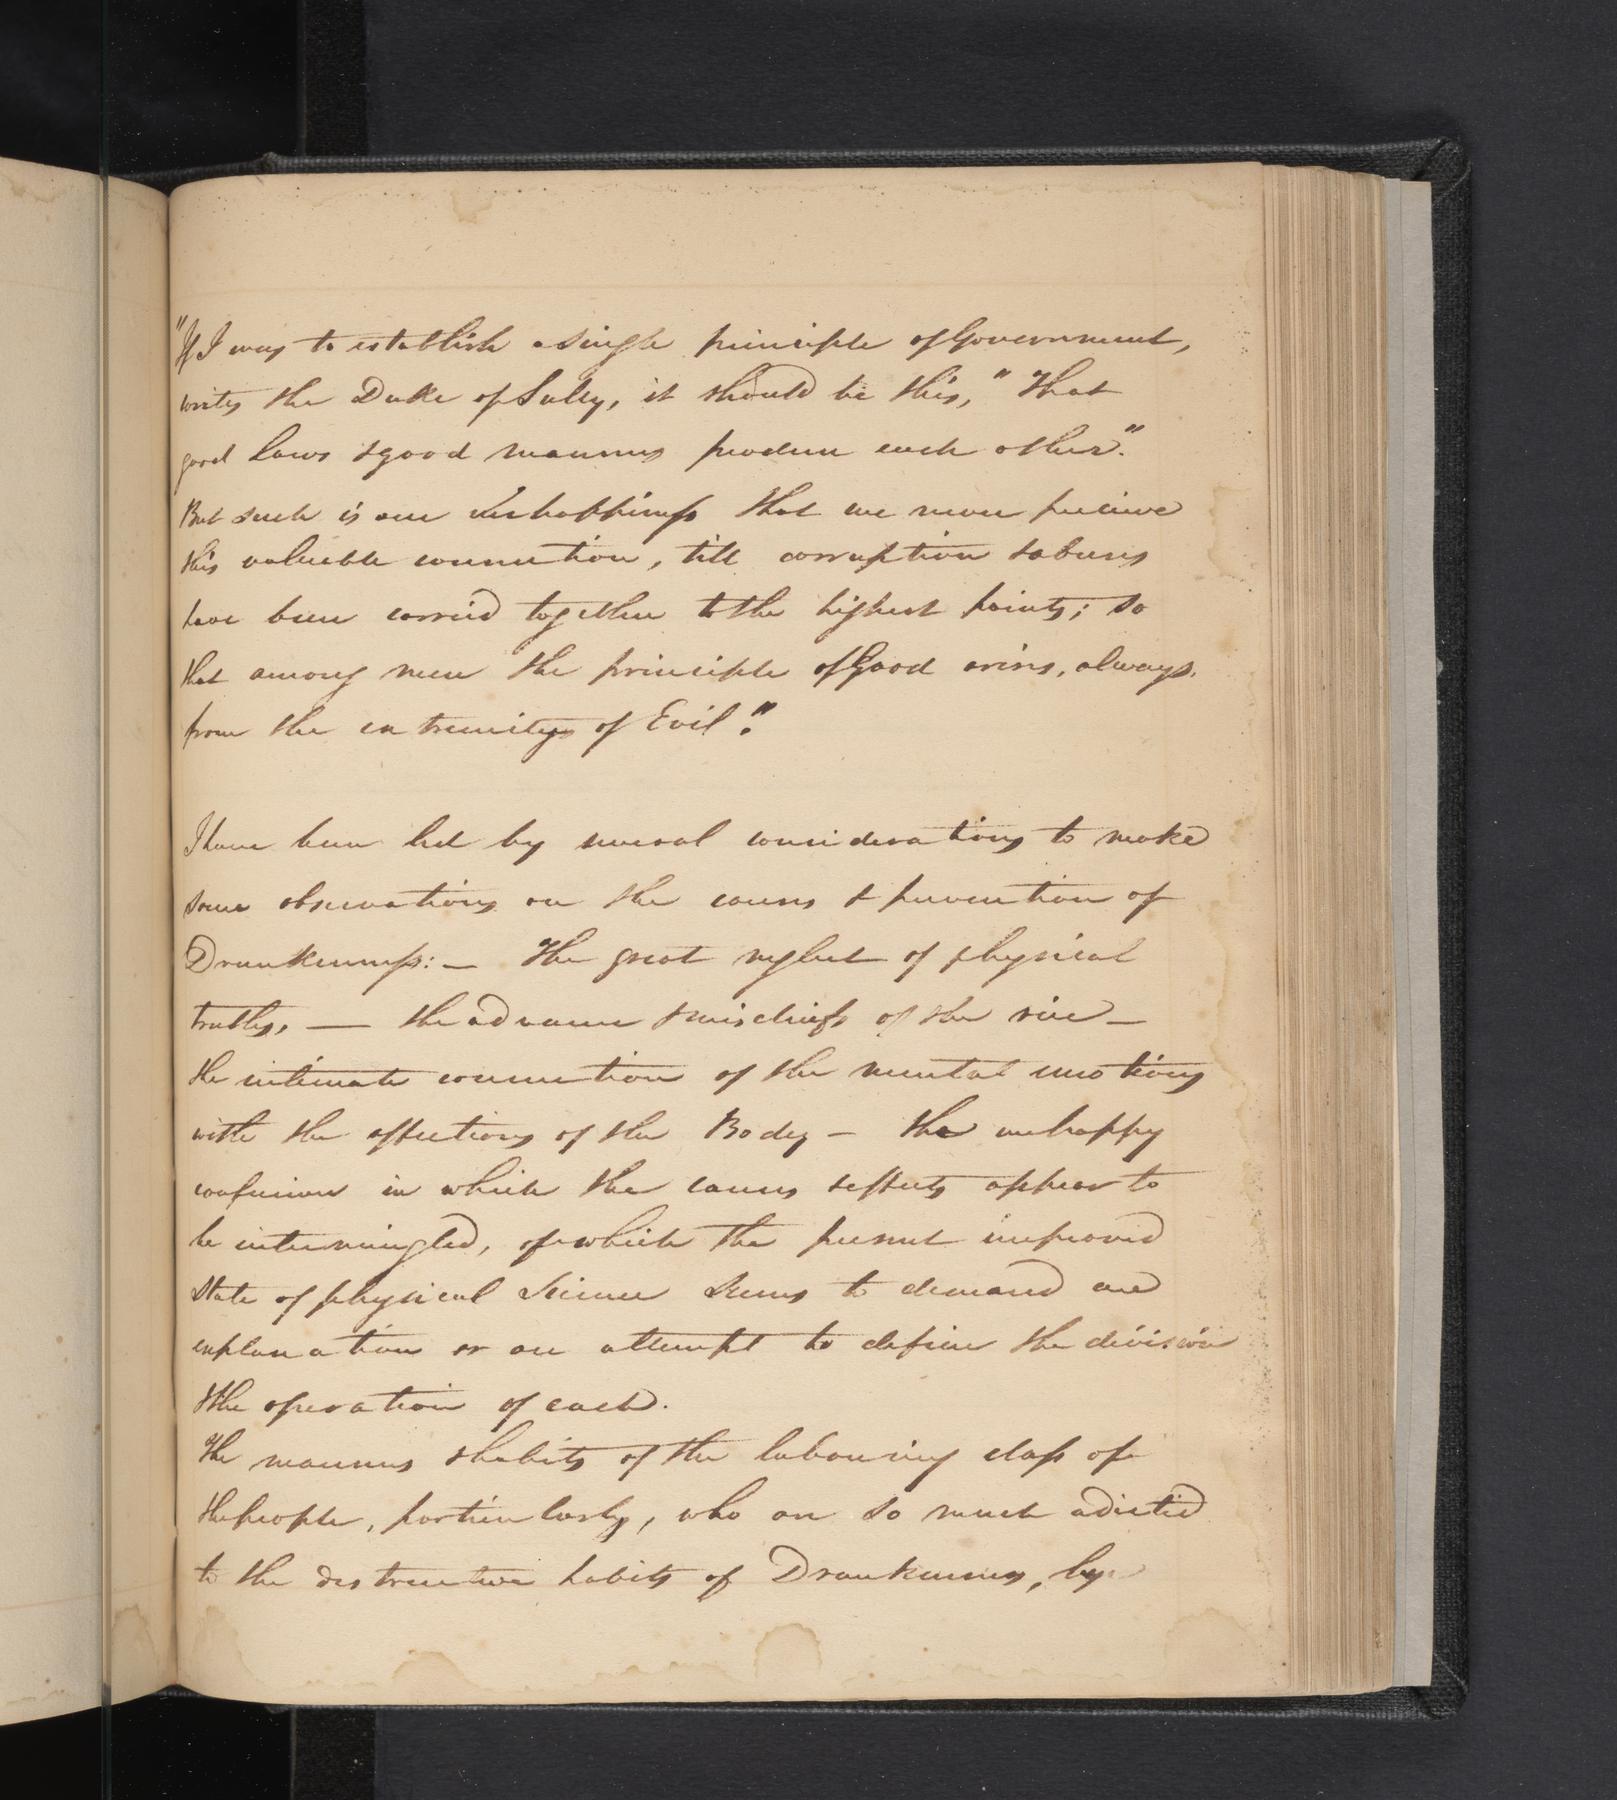 "If I was to establish a single principle of Government,
writes the Duke of Sully, it should be this, "That
good Laws & good manners produce each other".
But such is our Unhappiness that we never perceive
this valuable connection, till corruption & abuses
have been carried together to the highest points; so
that among men the principle of Good arises, always,
from the extremity of Evil".
I have been led by several considerations to make
some observations on the causes & prevention of
Drunkenness:— The great neglect of physical
truths, — the advance & mischiefs of the vice —
the intimate connection of the mental emotions
with the affections of the Body — the unhappy
confusion in which the causes & effects appear to
be intermingled, of which the present improved
State of physical Science seems to demand an
explanation or an attempt to define the division
& the operation of each.
The manners & habits of the labouring class of
the people, particularly, who are so much adicted
to the destructive habits of Drunkenness, by